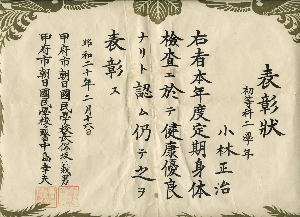 表彰状
初等科二學年
小林正治
右者本年度定期身体
檢査ニ於テ健康優良
ナリト認ム仍テ之ヲ
表彰ス
昭和二十年二月十六日
甲府市朝日國民學校長保坂義男
甲府市朝日國民學校醫中島幸夫